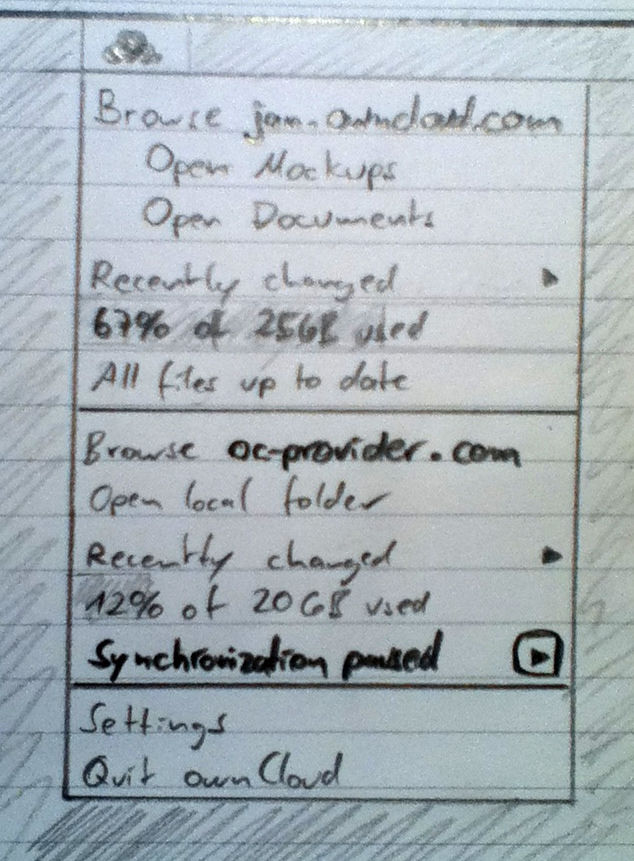 Browse jan.owncloud.com
Open Mockups
Open Documents
Recently changed
67% of 25GB used
All files up to date
Browse oc-provider.com
Open local folder
Recently changed
12% of 20GB used
Synchronization paused
Settings
Quit ownCloud